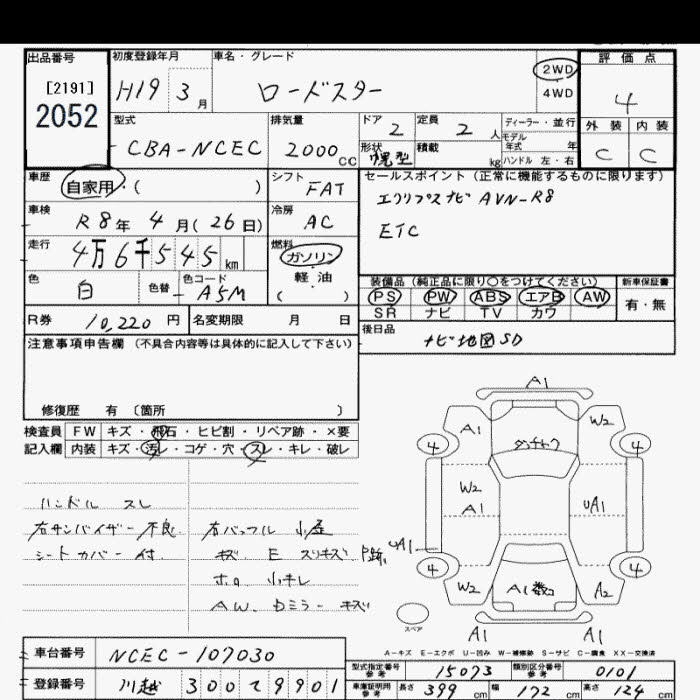 出品番号 初度登録年月 車名・グレード 2WD 評価点
[2191] H19 3月 ロードスター 4WD 4
2052
型式 排気量 ドア 定員 ディーラー・並行 外装 内装
CBA-NCEC 2000cc 2 2人 モデル年式 年 C C
形状 積載 kg ハンドル 左・右
幌型
車歴 シフト セールスポイント (正常に機能するものに限ります)
自家用・( ) FAT エクリプスナビ AVN-R8
車検 冷房 ETC
R8年 4月(26日) AC
走行 燃料
4万6千545km ガソリン
色 色替 色コード 軽油
白 A5M ( )
装備品 (純正品に限り○をつけてください) 新車保証書
PS PW ABS エアB AW 有・無
SR ナビ TV カワ
R券 10,220円 名変期限 月 日
後日品 ナビ地図SD
注意事項申告欄 (不具合内容等は具体的に記入して下さい)
修復歴 有 (箇所 )
検査員 FW キズ・飛石・ヒビ割・リペア跡・×要
記入欄 内装 キズ・汚レ・コゲ・穴・スレ・キレ・破レ
ハンドル スレ
右サンバイザー 不良
シートカバー 付
キズ E スリキズ P跡
ホロ 小キレ
AW. Dミラー キズ
A1
A1 W2
4 4
W2
A1 UA1
UA1
4 4
W2 A1数コ A2
A1 A1
スペア
A-キズ E-エクボ U-凹み W-補修跡 S-サビ C-腐食 XX-交換済
車台番号 NCEC-107030
登録番号 川越 300 9901
型式指定番号 参考 15073 類別区分番号 参考 0101
車庫証明用 参考 長さ 399cm 幅 172cm 高さ 124cm